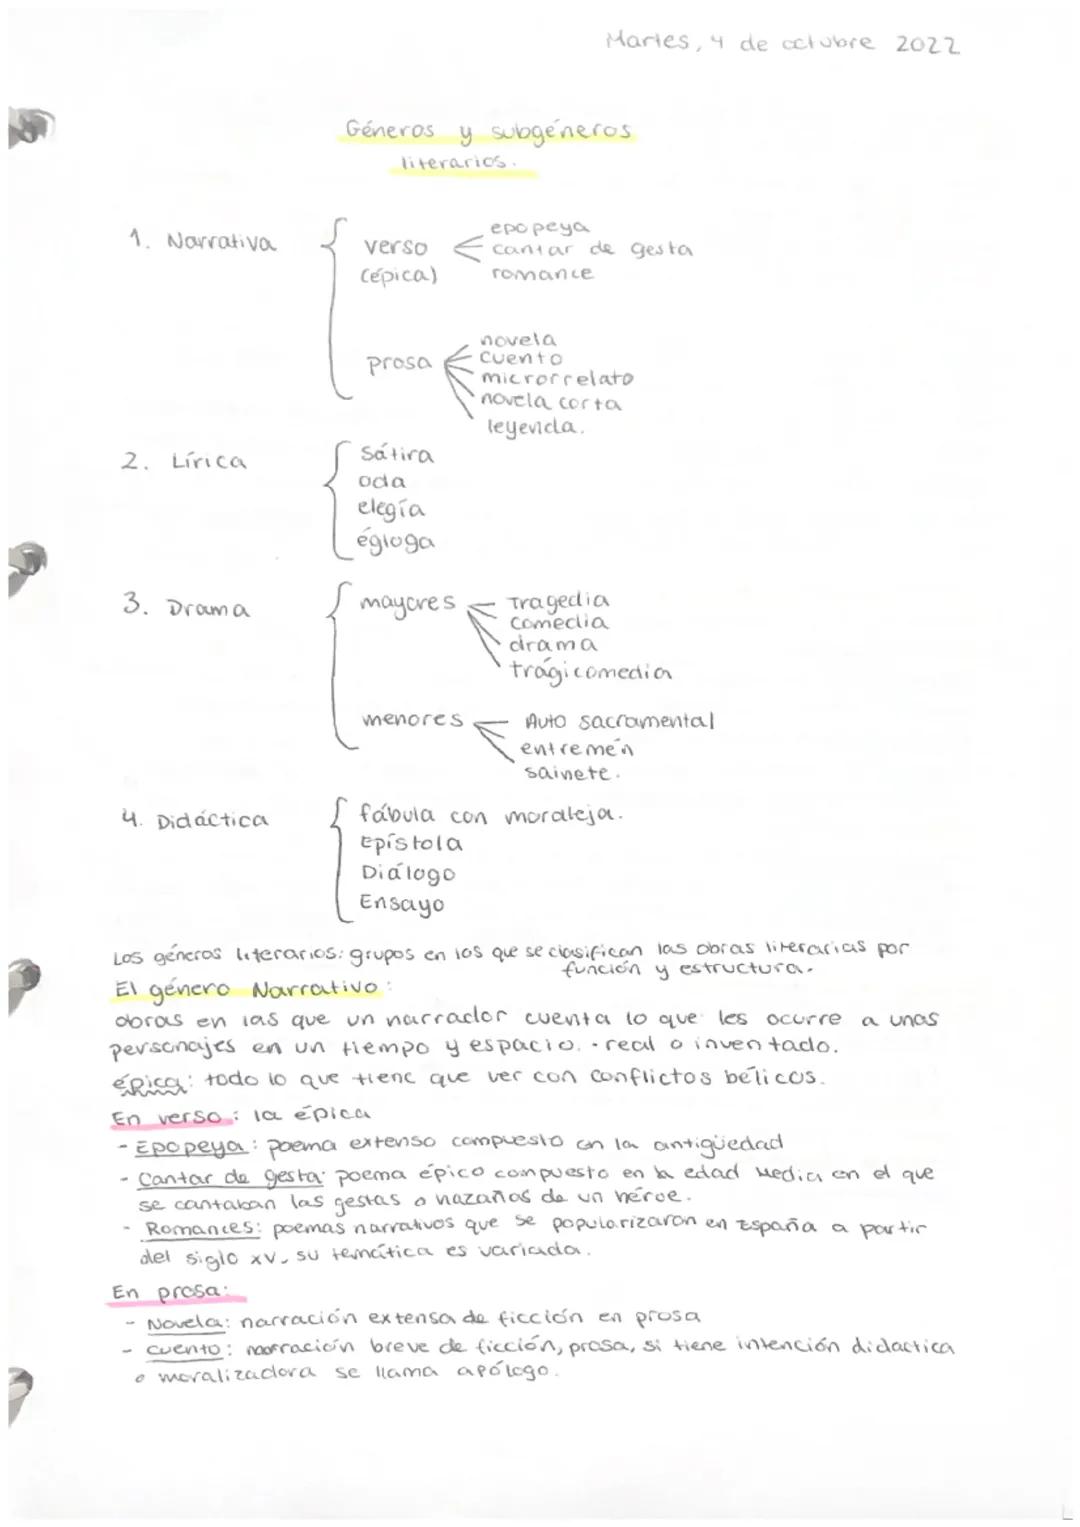 Martes, 4 de octubre 2022
Géneros y subgéneros
literarios.
1. Narrativa
verso
(épica)
epopeya
cantar de gesta
romance
prosa
novela
cuento
microrrelato
novela corta
leyenda.
2. Lírica
sátira
oda
elegía
égloga
3. Drama
mayores
Tragedia
comedia
drama
trágicomedia
menores
Auto sacramental
entremén
sainete.
4. Didáctica
fábula con moraleja.
Epístola
Diálogo
Ensayo
Los géneros literarios: grupos en los que se clasifican las obras literarias por
función y estructura.
El género Narrativo:
obras en las que un narrador cuenta lo que les ocurre a unas
personajes en un tiempo y espacio. · real o inventado.
épica: todo lo que tiene que ver con conflictos bélicos.
En verso: la épica
- Epopeya: poema extenso compuesto en la antigüedad
- Cantar de gesta: poema épico compuesto en la edad Media en el que
se cantaban las gestas o hazañas de un héroe.
- Romances: poemas narrativos que se popularizaron en España a partir
del siglo XV, su temática es variada.
En prosa:
- Novela: narración extensa de ficción en prosa
- cuento: narración breve de ficción, prosa, si tiene intención didactica
o moralizadora se llama apólogo.